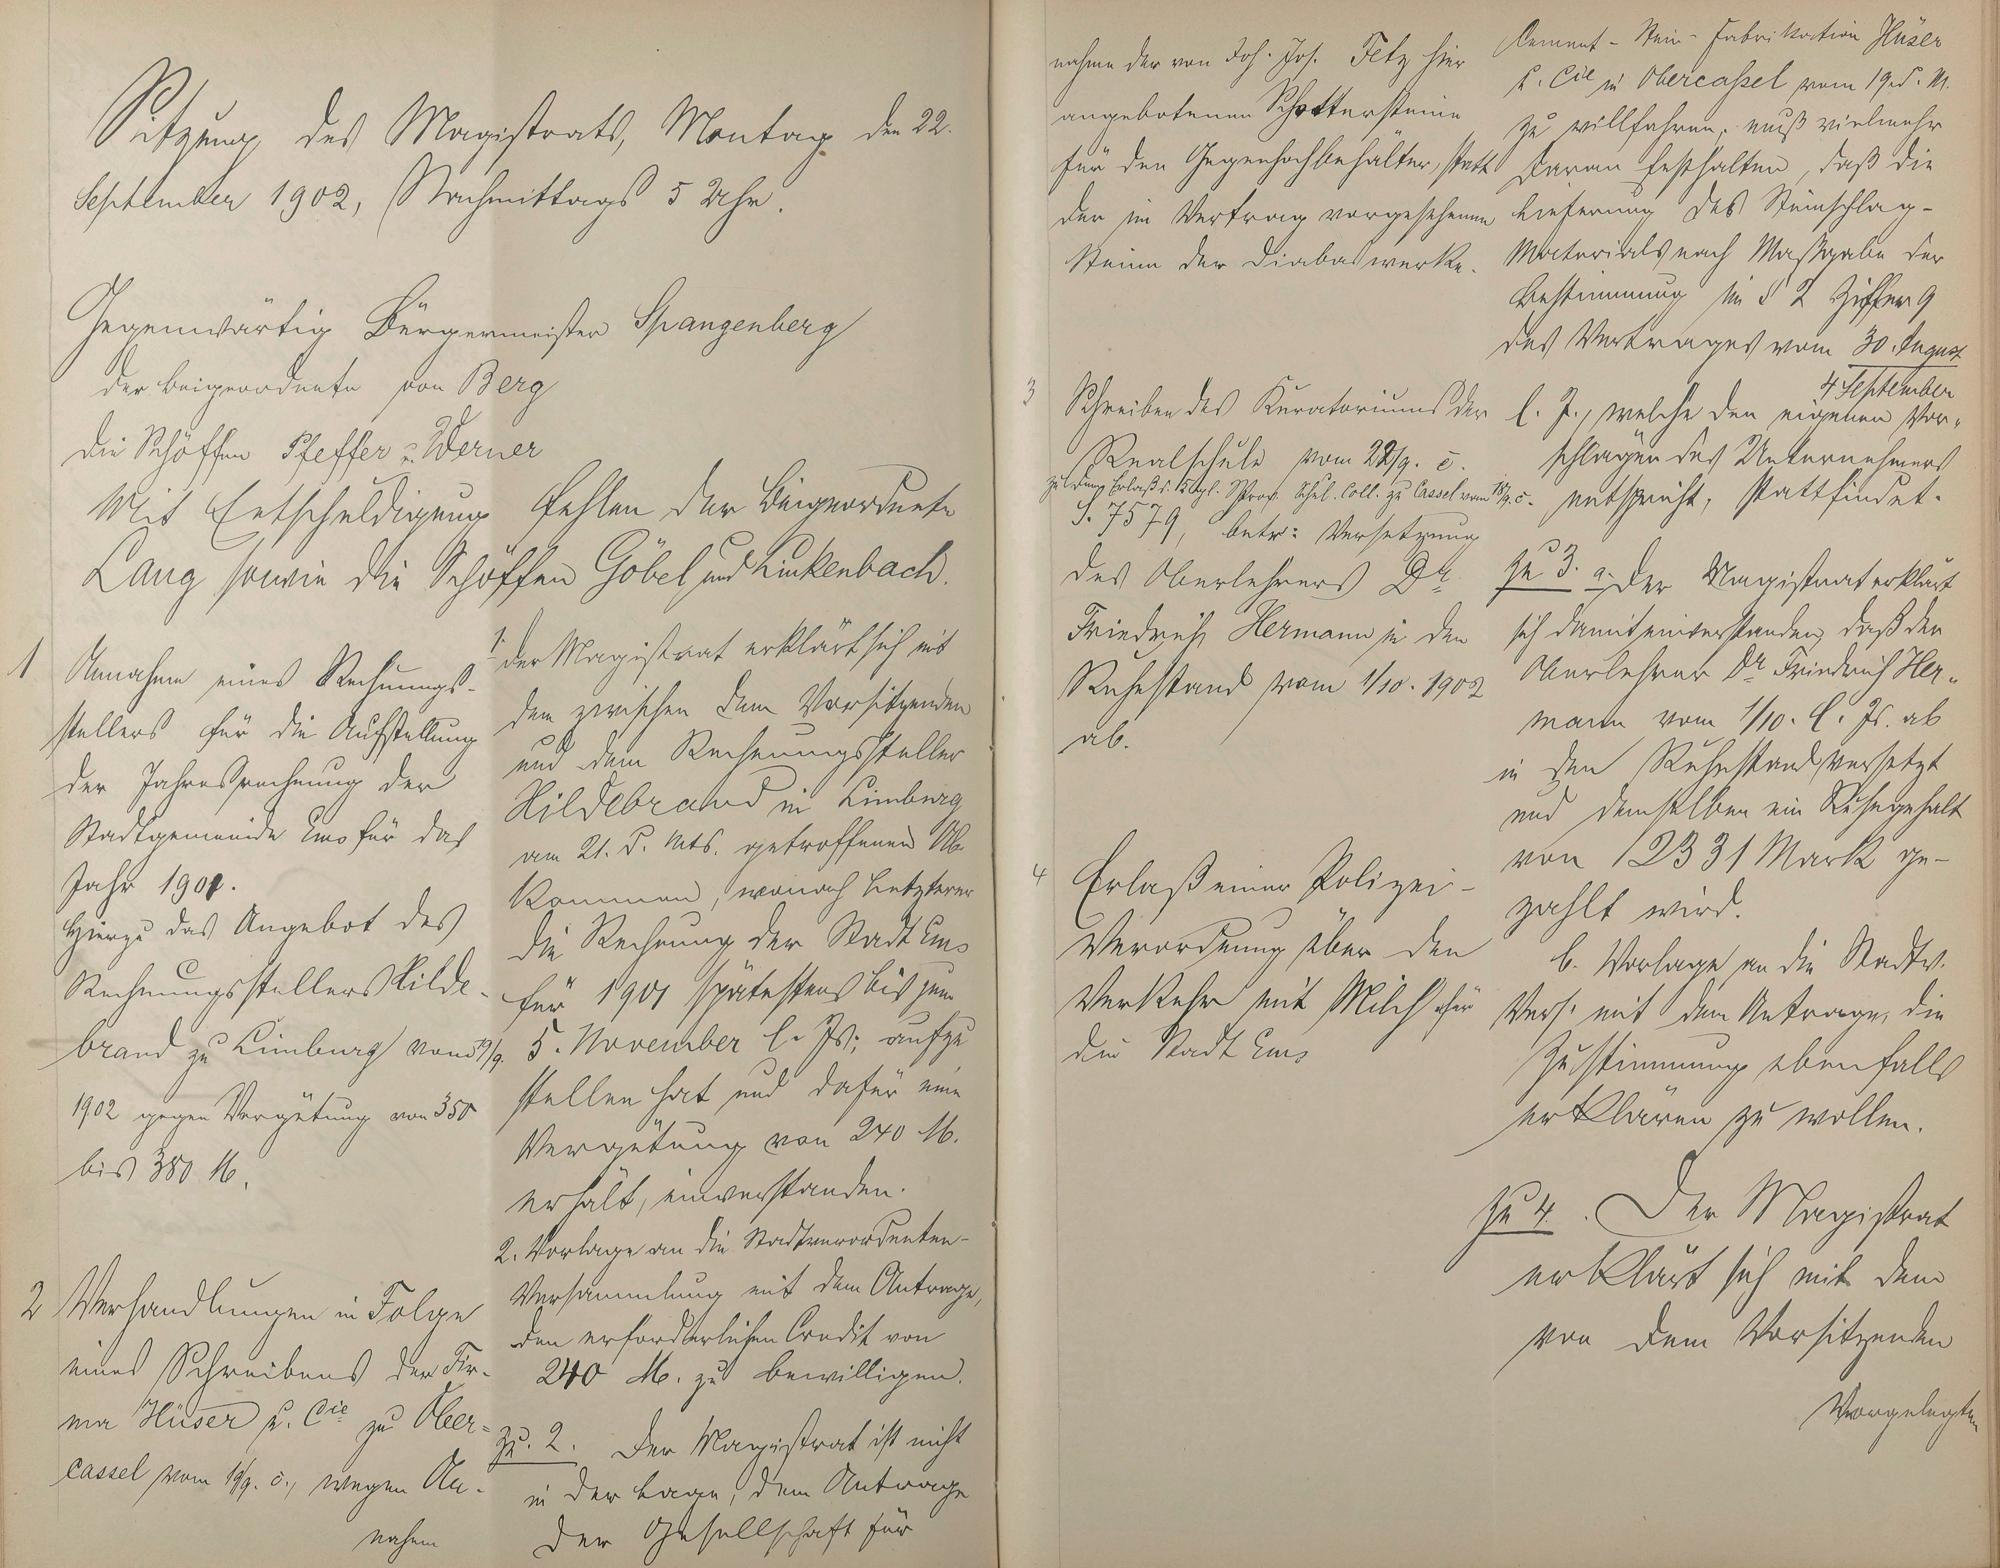 Sitzung des Magistrats, Montag den 22.
September 1902, Nachmittags 5 Uhr.
Gegenwärtig Bürgermeister Spangenberg
der Beigeordnete von Berg
die Schöffen Pfeffer u. Werner
Mit Entschuldigung fehlen der Beigeordnete
Lang sowie die Schöffen Göbel und Linkenbach.
1 Annahme eines Rechnungs-
stellers für die Aufstellung
der Jahresrechnung der
Stadtgemeinde Ems für das
Jahr 1901.
Hierzu das Angebot des
Rechnungsstellers Hilde-
brand zu Limburg vom 19/9.
1902 gegen Vergütung von 350
bis 380 M.
2 Verhandlungen in Folge
eines Schreibens der Fir-
ma Hüser u. Cie zu Ober-
cassel vom 19/9. c., wegen An-
nahem
1. der Magistrat erklärt sich mit
dem zwischen dem Vorsitzenden
und dem Rechnungssteller
Hildebrand in Limburg
am 21. d. Mts. getroffenen Ab-
kommen, wonach Letzterer
die Rechnung der Stadt Ems
für 1901 spätestens bis zum
5. November l. Js. aufzu
stellen hat und dafür eine
Vergütung von 240 M.
erhält, einverstanden.
2. Vorlage an die Stadtverordneten-
Versammlung mit dem Antrage,
den erforderlichen Credit von
240 M. zu bewilligen.
zu. 2. Der Magistrat ist nicht
in der Lage, dem Antrage
der Gesellschaft für
nahme der von Joh. Jos. Fetz hier
angebotenen Schottersteine
für den Gegenhochbehälter, statt
der im Vertrag vorgesehenen
Steine der Diabaswerke.
3 Schreiben des Kuratoriums der
Realschule vom 22/9. c.
zu dem Erlaß d. Kgl. Prov. Schul. Coll. zu Cassel vom 18/9. c.
S. 7579, betr: Versetzung
des Oberlehrers Dr.
Friedrich Hermann in den
Ruhestand vom 1/10. 1902
ab.
4 Erlaß einer Polizei-
Verordnung über den
Verkehr mit Milch für
die Stadt Ems
Cement-Stein-Fabrikation Hüser
u. Cie in Obercassel vom 19. d. M.
zu willfahren, muß vielmehr
daran festhalten, daß die
Lieferung des Steinschlag-
Materials nach Maßgabe der
Bestimmung im § 2 Ziffer 9
des Vertrages vom 30. August
4 September
l. J., welche den eigenen Vor-
schlägen des Unternehmers
entspricht, stattfindet.
Zu 3. a. Der Magistrat erklärt
sich damit einverstanden, daß der
Oberlehrer Dr Friedrich Her-
mann vom 1/10. l. Js. ab
in den Ruhestand versetzt
und demselben ein Ruhegehalt
von 2331 Mark ge-
zahlt wird.
b. Vorlage an die Stadtv.
Vers. mit dem Antrage, die
Zustimmung ebenfalls
erklären zu wollen.
Zu 4. Der Magistrat
erklärt sich mit dem
von dem Vorsitzenden
Vorgelegten